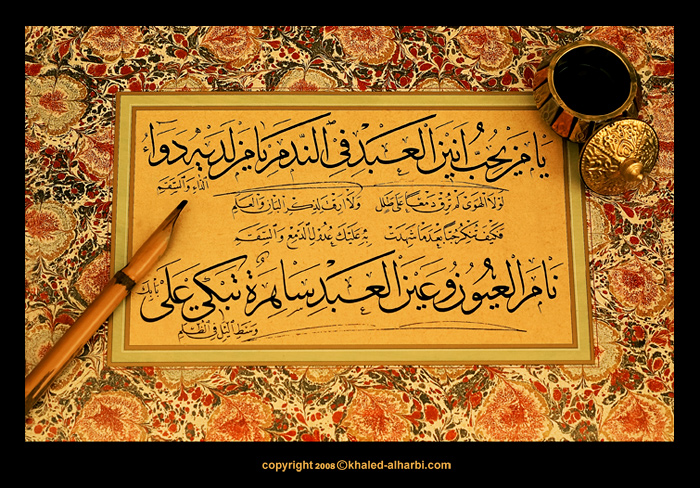 يا من يحب أنين العبد في الندم يا من لديه دواء
الداء والسقم
لولا الهوى لم ترق دمعا على طلل ولا أرقت لذكر البان والعلم
فكيف تنكر حبا بعد ما شهدت به عليك عدول الدمع والسقم
نام العيون وعين العبد ساهرة تبكي على بابك
وسط الليل في الظلم
copyright 2008 ©khaled-alharbi.com